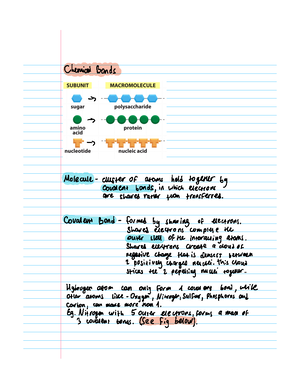 Chemical Bonds
SUBUNIT MACROMOLECULE
sugar polysaccharide
amino acid protein
nucleotide nucleic acid
Molecule - cluster of atoms held together by
covalent bonds, in which electrons
are shared rather than transferred.
Covalent Bond - formed by sharing of electrons.
Shared electrons complete the
outer shell of the interacting atoms.
Shared electrons create a cloud of
negative charge that is densest between
2 positively charged nuclei. This cloud
sticks the 2 repelling nuclei together.
Hydrogen atom can only form 1 covalent bond, while
other atoms like - Oxygen, Nitrogen, Sulfur, Phosphorus and
Carbon, can make more than 1.
Eg. Nitrogen with 5 outer electrons, forms a max of
3 covalent bonds. (See Fig below).